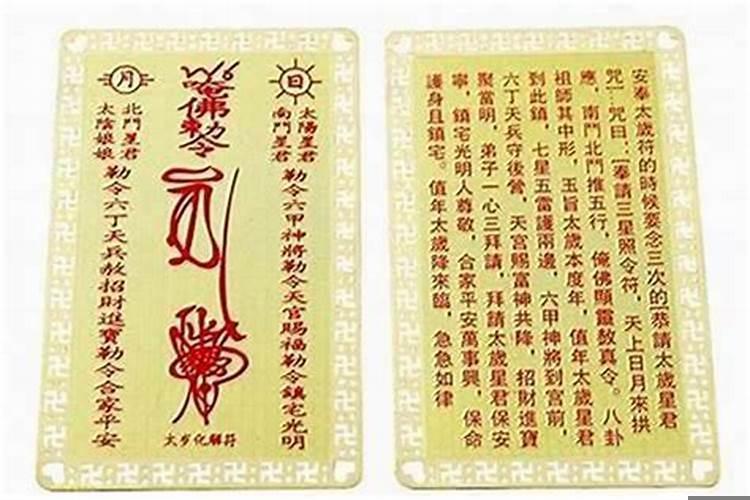 日
太陽星君
南鬥星君
勒令六甲神將勒令天官賜福勒令鎮宅光明
唵佛勅令
太歲化解符
月
北鬥星君
太陰娘娘
勒令六丁天兵赦招財進寶勒令合家平安
安奉太歲符的時候要念三次的[恭請太歲星君
咒]:咒曰:[奉請三星照令符,天上日月來拱
應,南鬥北鬥推五行,俺佛顯靈敖真令。八卦
祖師其中形,玉旨太歲本度年,值年太歲星君
到此鎮,七星五雷護兩邊,六甲神將到宮前,
六丁天兵守後營,天宮賜富神共降,招財進寶
聚當明,弟子一心三拜請,拜請太歲星君保安
寧,鎮宅光明人尊敬,合家平安萬事興,保命
護身且鎮宅。值年太歲降來臨,急急如律